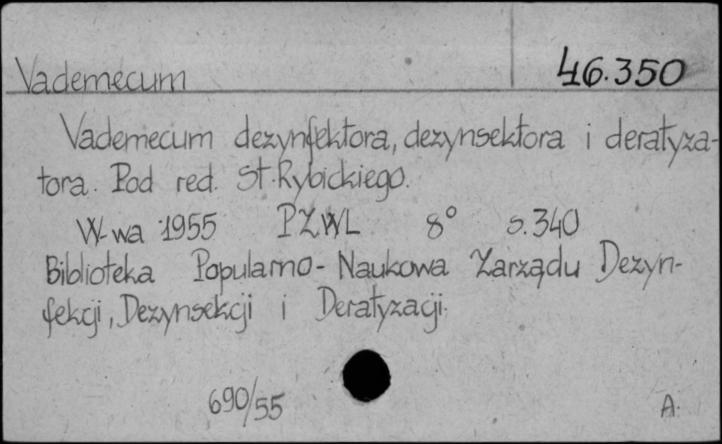 Vademecum 46.350
Vademecum dezynfektora, dezynsektora i deratyza-
tora. Pod red. St. Rybickiego.
W-wa 1955 PZWL 8° s. 340
Biblioteka Popularno-Naukowa Zarządu Dezyn-
fekcji, Dezynsekcji i Deratyzacji.
690/55 A.